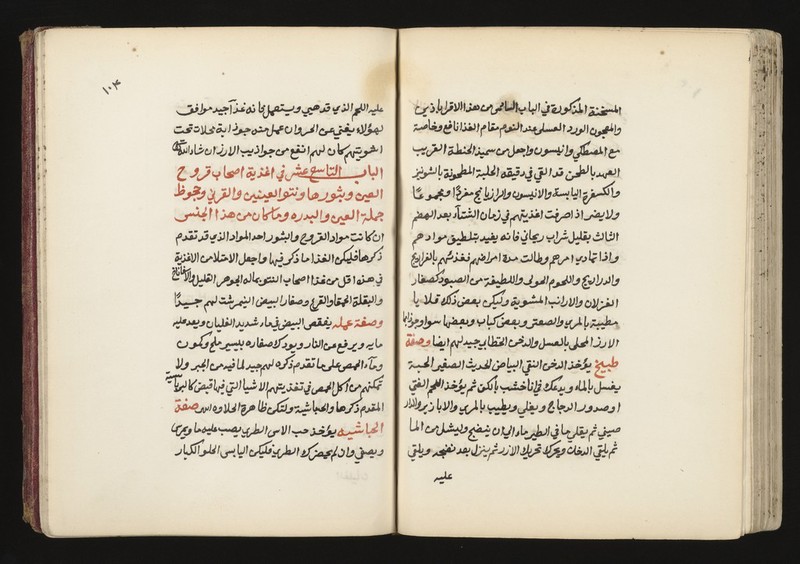 المسخنة المذكورة في الباب السادس من هذا الاقراباذين
والمعجون الورد العسلي عند النوم مقام الغذا نافع وخاصة
مع المصطكي وانيسون واجعل من سميذ الحنطة القريب
العهد بالطحن قد القي في دقيقه الحلبة المطحونة بالشونيز
والكسفرة اليابسة والانيسون والرازيانج مفردًا ومجموعًا
ولا يضر اذا صرفت اغذيتهم في زمان الشتآء بعد الهضم
الثالث بقليل شراب ريحاني فانه يفيد بتلطيف موادهم
واذا تمادي امرهم وطالت مدة امراضهم فغذيتهم بالفراريج
والدراريج واللحوم الحولي واللطيفة من الصيود كصغار
الغزلان والارانب المشوية وليكن بعض ذلك قلايا
مطيبة بالمري والصعتر وبعض كباب وبعضها سواوجوذابها
الارز المحلي بالعسل والدخن الخطابي جيد لهم ايضا وصفة
طبيخ يؤخذ الدخن النقي البياض الحديث الصغير الحبة
يغسل بالماء ويدعك في انا خشب بالكف ثم يؤخذ اللحم الفتي
او صدور الدجاج ويغلي ويطيب بالمري والابازير والدار
صيني ثم يقلي جافي الطير ماء الي ان ينضج وينشل من الما
ثم يلقي الدخان ويحرك تحريك الارز ثم ينزل بعد نضجه ويلقي
عليه
١٠٣
عليه اللحم الذي قد هيي ويستعمل فانه غذآ جيد موافق
لهؤلاء يغني عن الحروان عمل منه جوذابة محلات تحت
اشويتهم كان لهم انفع من جواذيب الارز ان شاء الله تعالي
الباب التاسع عشر في اغذية اصحاب قروح
العين وبثورها ونتو العينين والقرني وجحوظ
جملة العين والبدره وما كان من هذا الجنس
ان كانت مواد القروح والبثور احد المواد الذي قد تقدم
ذكرها فليكن الغذا ما ذكر فيها واجعل الامتلا من الاغذية
في هذه اقل من غذا اصحاب النتو بماله الجوهر القليل والاسفاناخ
والبقلة الحمقا والقرع وصفار البيض النيمرشت لهم جيدًا
وصفة عمله يفقص البيض في ماء شديد الغليان ويعد عليه
مايه ويرفع من النار ويود ك صفاره بيسير ملح وكمون
وماء الحمص علي ما تقدم ذكره لهم جيد لما فيه من الجبر ولا
تمكنهم من اكل الحمص في تغذيتهم الاشيا التي فيها قبض كالبرباسية
المقدم ذكرها والحباشية ولتكن ظاهرة الحلاوه صفة
الحباشيه يؤخذ حب الاس الطري يصب عليه ما ويمرس
ويصفي وان لم يحضرك الطري فليكن اليابس الحلو الكبار